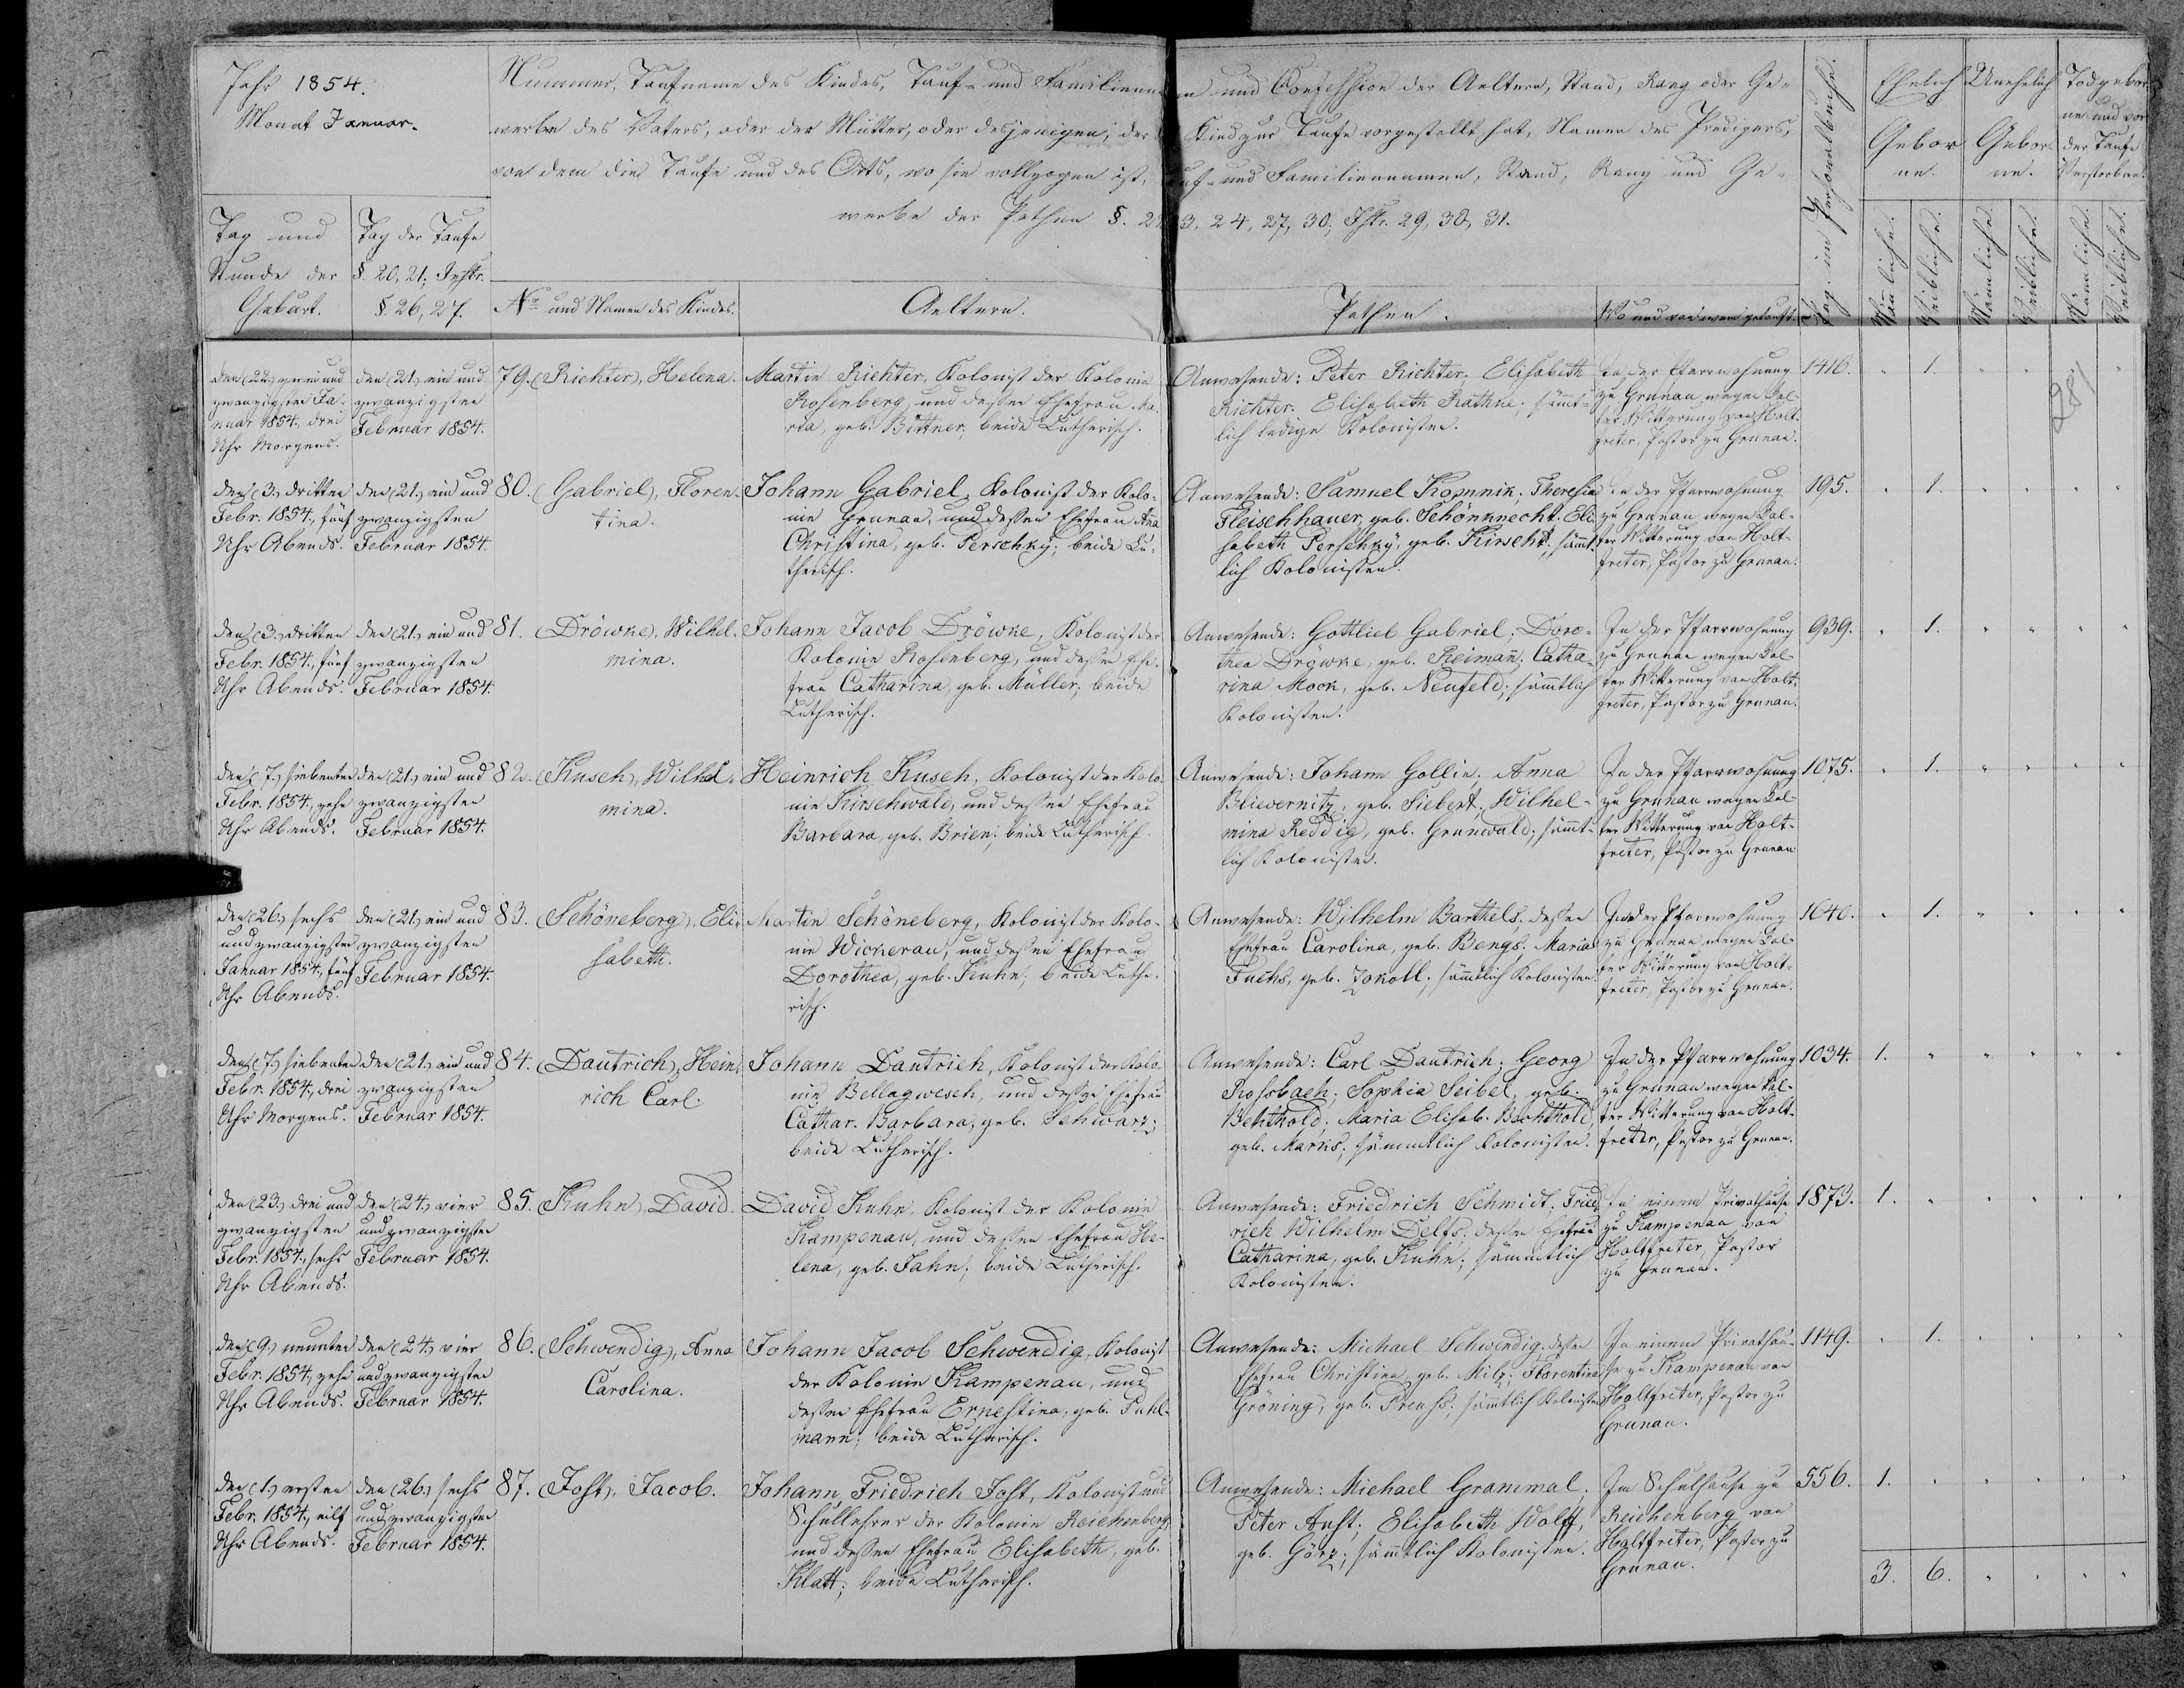 Jahr 1854.
Monat Januar.
Nummer, Taufname des Kindes, Tauf- und Familienna
n und Confession der Aeltern, Stand, Rang oder Ge-
werbe des Vaters, oder der Mutter, oder desjenigen, der
Kind zur Taufe vorgestellt hat, Namen des Predigers,
von dem die Taufe und des Orts, wo sie vollzogen ist,
auf- und Familiennamen, Stand, Rang und Ge-
werbe der Pathen §. 22
3, 24, 27, 30; Istr. 29, 30, 31.
Tag und
Stunde der
Geburt.
Tag der Taufe
§. 20, 21; Instr.
§ 26, 27.
No und Namen des Kindes.
Aeltern.
Pathen.
Wo und von wem getauft.
Pag. im Personalbuche.
Ehelich
Gebor
ne.
Unehelich
Gebor
ne.
Todgebor
ne und vor
der Taufe
Verstorbne.
Männliche.
Weibliche.
Männliche.
Weibliche.
Männliche.
Weibliche.
281
den (22.) zwei und
zwanzigsten Ja-
nuar 1854., drei
Uhr Morgens.
den (21.) ein und
zwanzigsten
Februar 1854.
79. (Richter), Helena.
Martin Richter, Kolonist der Kolonie
Rosenberg, und dessen Ehefrau Ma-
ria, geb. Bittner; beide Lutherisch.
Anwesende: Peter Richter. Elisabeth
Richter. Elisabeth Rathke; sämt-
lich ledige Kolonisten.
In der Pfarrwohnung
zu Grunau wegen kal-
ter Witterung von Holt-
freter, Pastor zu Grunau.
1416.
1.
den (3.) dritten
Febr. 1854., fünf
Uhr Abends.
den (21.) ein und
zwanzigsten
Februar 1854.
80. (Gabriel), Floren-
tina.
Johann Gabriel, Kolonist der Kolo-
nie Grunau, und dessen Ehefrau Aña
Christina, geb. Perschky; beide Lu-
therisch.
Anwesende: Samuel Komnik. Theresia
Fleischhauer, geb. Schönknecht. Eli-
sabeth Perschky, geb. Kirscht; sämt-
lich Kolonisten.
In der Pfarrwohnung
zu Grunau wegen kal-
ter Witterung von Holt-
freter, Pastor zu Grunau.
195.
1.
den (3.) dritten
Febr. 1854., fünf
Uhr Abends.
den (21.) ein und
zwanzigsten
Februar 1854.
81. (Dröwke), Wilhel-
mina.
Johann Jacob Dröwke, Kolonist der
Kolonie Rosenberg, und dessen Ehe-
frau Catharina, geb. Müller; beide
Lutherisch.
Anwesende: Gottlieb Gabriel; Doro-
thea Dröwke, geb. Reimañ; Catha-
rina Mock, geb. Neufeld; sämtlich
Kolonisten.
In der Pfarrwohnung
zu Grunau wegen kal-
ter Witterung von Holt-
freter, Pastor zu Grunau.
939.
1.
den (7.) siebenten
Febr. 1854., zehn
Uhr Abends.
den (21.) ein und
zwanzigsten
Februar 1854.
82. (Kusch), Wilhel-
mina.
Heinrich Kusch, Kolonist der Kolo-
nie Kirschwald, und dessen Ehefrau
Barbara, geb. Brien; beide Lutherisch.
Anwesende: Johann Gollin. Anna
Blievernitz, geb. Siebert. Wilhel-
mina Reddig, geb. Grunwald; sämt-
lich Kolonisten.
In der Pfarrwohnung
zu Grunau wegen kal-
ter Witterung von Holt-
freter, Pastor zu Grunau
1075.
1.
den (26.) sechs
und zwanzigsten
Januar 1854., fünf
Uhr Abends.
den (21.) ein und
zwanzigsten
Februar 1854.
83. (Schöneberg), Eli-
sabeth.
Martin Schöneberg, Kolonist der Kolo-
nie Wickerau, und dessen Ehefrau
Dorothea, geb. Kuhn; beide Luthe-
risch.
Anwesende: Wilhelm Barthels, dessen
Ehefrau Carolina, geb. Bengs. Maria
Fuchs, geb. Zokoll; sämtlich Kolonisten.
In der Pfarrwohnung
zu Grunau wegen kal-
ter Witterung von Holt-
freter, Pastor zu Grunau.
1640.
1.
den (7.) siebenten
Febr. 1854., drei
Uhr Morgens.
den (21.) ein und
zwanzigsten
Februar 1854.
84. (Dautrich), Hein-
rich Carl.
Johann Dautrich, Kolonist der Kolo-
nie Bellagwesch, und dessen Ehefrau
Cathar. Barbara, geb. Schwarz;
beide Lutherisch.
Anwesende: Carl Dautrich; Georg
Rossbach; Sophia Seibel, geb.
Bechthold; Maria Elisab. Bechthold,
geb. Marks; sämmtlich Kolonisten.
In der Pfarrwohnung
zu Grunau wegen kal-
ter Witterung von Holt-
freter, Pastor zu Grunau.
1034.
1.
den (23.) drei und
zwanzigsten
Febr. 1854., sechs
Uhr Abends.
den (24.) vier
und zwanzigsten
Februar 1854.
85. (Kuhn), David.
David Kuhn, Kolonist der Kolonie
Kampenau, und dessen Ehefrau He-
lena, geb. Jahn; beide Lutherisch.
Anwesende: Friedrich Schmidt; Fried-
rich Wilhelm Delfs, dessen Ehefrau
Catharina, geb. Kuhn; sämmtlich
Kolonisten.
In einem Privathause
zu Kampenau von
Holtfreter, Pastor
zu Grunau.
1873.
1.
den (9.) neunten
Febr. 1854., zehn
Uhr Abends.
den (24.) vier
und zwanzigsten
Februar 1854.
86. (Schwendig), Anna
Carolina.
Johann Jacob Schwendig, Kolonist
der Kolonie Kampenau, und
dessen Ehefrau Ernestina, geb. Puhl-
mann; beide Lutherisch.
Anwesende: Michael Schwendig, dessen
Ehefrau Christina, geb. Milz; Florentina
Gröning, geb. Preuss; sämtlich Kolonisten
In einem Privathau-
se zu Kampenau von
Holtfreter, Pastor zu
Grunau.
1149.
1.
den (1.) ersten
Febr. 1854., eilf
Uhr Abends.
den (26.) sechs
und zwanzigsten
Februar 1854.
87. (Jost), Jacob.
Johann Friedrich Jost, Kolonist und
Schullehrer der Kolonie Reichenberg,
und dessen Ehefrau Elisabeth, geb.
Klatt; beide Lutherisch.
Anwesende: Michael Grammal.
Peter Aust; Elisabeth Wolff,
geb. Görz; sämtlich Kolonisten.
Im Schulhause zu
Reichenberg von
Holtfreter, Pastor zu
Grunau.
556.
1.
3. 6.